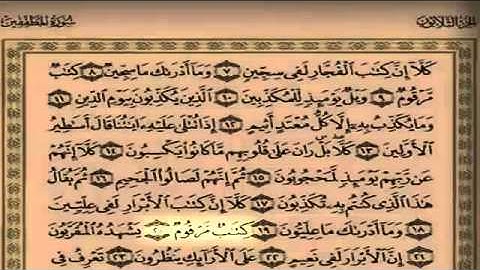 الجزء الثلاثون سورة المطففين
كَلَّا إِنَّ كِتَٰبَ ٱلْفُجَّارِ لَفِى سِجِّينٍ ٧ وَمَآ أَدْرَىٰكَ مَا سِجِّينٌ ٨ كِتَٰبٌ
مَّرْقُومٌ ٩ وَيْلٌ يَوْمَئِذٍ لِّلْمُكَذِّبِينَ ١٠ ٱلَّذِينَ يُكَذِّبُونَ بِيَوْمِ ٱلدِّينِ ١١
وَمَا يُكَذِّبُ بِهِۦٓ إِلَّا كُلُّ مُعْتَدٍ أَثِيمٍ ١٢ إِذَا تُتْلَىٰ عَلَيْهِ ءَايَٰتُنَا قَالَ أَسَٰطِيرُ
ٱلْأَوَّلِينَ ١٣ كَلَّا بَلْ رَانَ عَلَىٰ قُلُوبِهِم مَّا كَانُوا۟ يَكْسِبُونَ ١٤ كَلَّآ إِنَّهُمْ
عَن رَّبِّهِمْ يَوْمَئِذٍ لَّمَحْجُوبُونَ ١٥ ثُمَّ إِنَّهُمْ لَصَالُوا۟ ٱلْجَحِيمِ ١٦ ثُمَّ يُقَالُ
هَٰذَا ٱلَّذِى كُنتُم بِهِۦ تُكَذِّبُونَ ١٧ كَلَّآ إِنَّ كِتَٰبَ ٱلْأَبْرَارِ لَفِى عِلِّيِّينَ
١٨ وَمَآ أَدْرَىٰكَ مَا عِلِّيُّونَ ١٩ كِتَٰبٌ مَّرْقُومٌ ٢٠ يَشْهَدُهُ ٱلْمُقَرَّبُونَ
٢١ إِنَّ ٱلْأَبْرَارَ لَفِى نَعِيمٍ ٢٢ عَلَى ٱلْأَرَآئِكِ يَنظُرُونَ ٢٣ تَعْرِفُ فِى